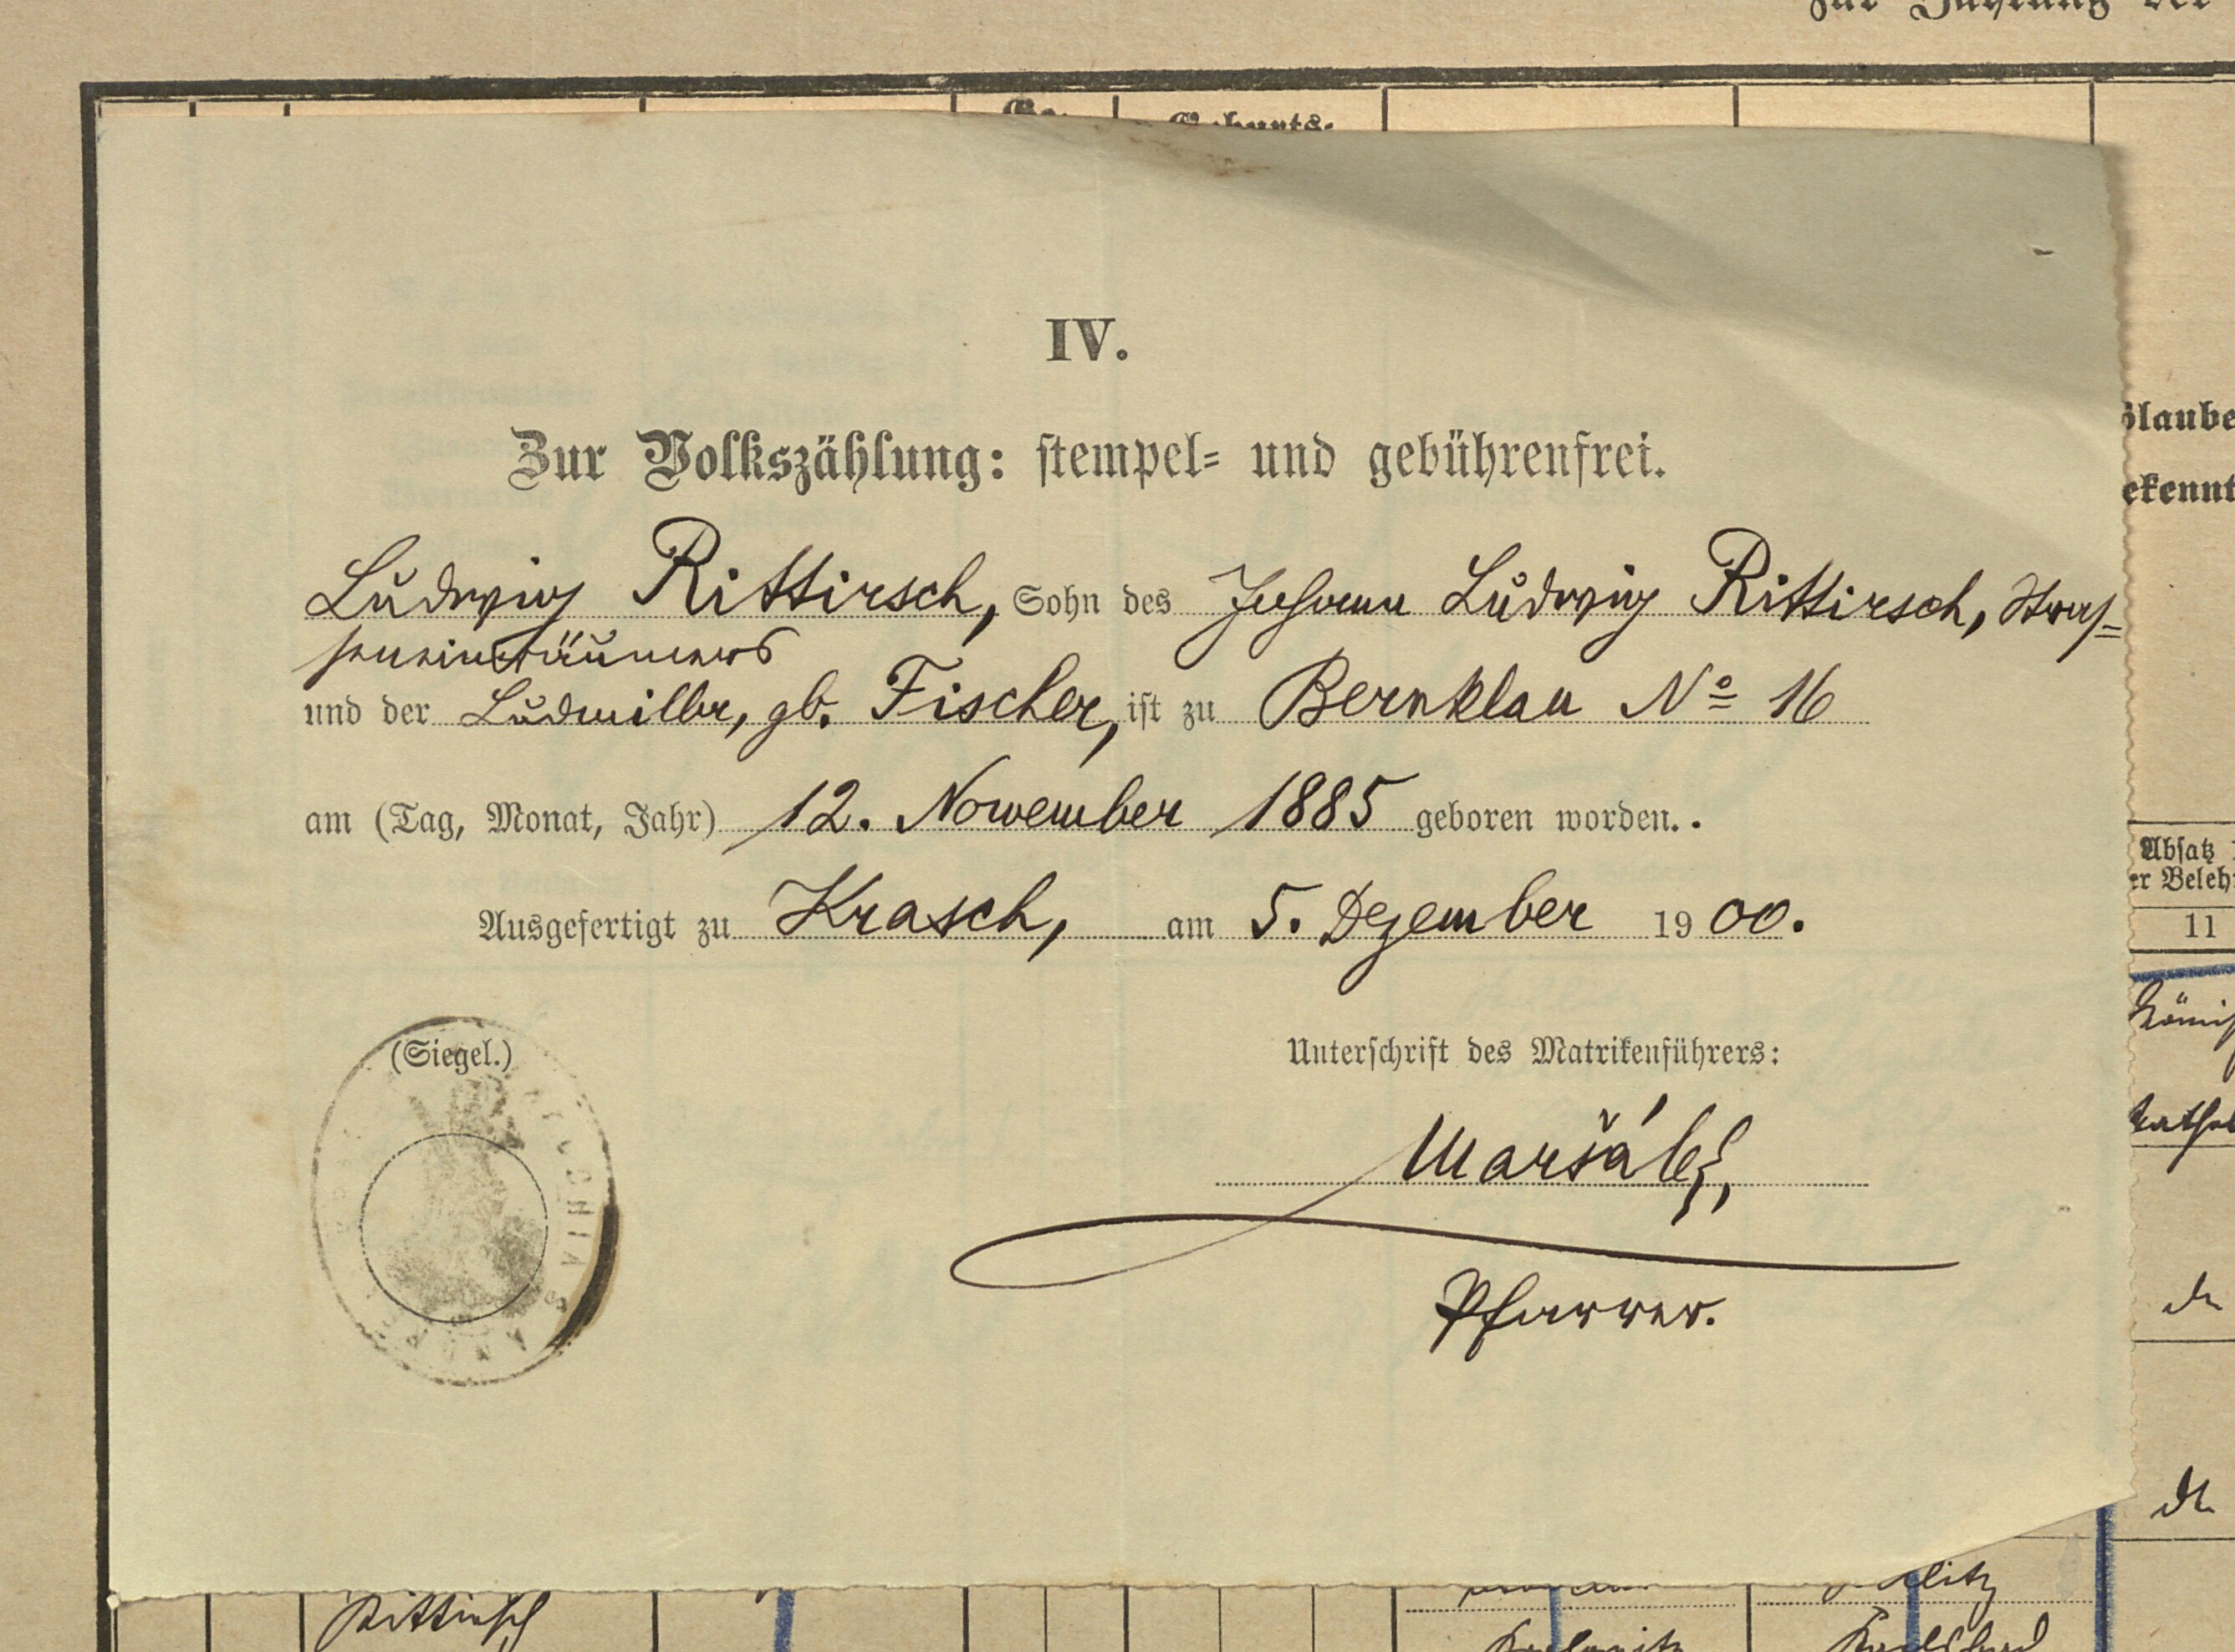 IV.
Zur Volkszählung: stempel- und gebührenfrei.
Ludwig Rittirsch, Sohn des Johann Ludwig Rittirsch, Stras-
seneinräumers
und der Ludmilla, gb. Fischer, ist zu Bernklau No 16
am (Tag, Monat, Jahr) 12. November 1885 geboren worden..
Ausgefertigt zu Krasch, am 5. Dezember 1900.
(Siegel.)
Unterschrift des Matrikenführers:
Maršálek,
Pfarrer.
Glaube
ekennt
Absatz
er Beleh
11
Römis
kathol
Rittirsch